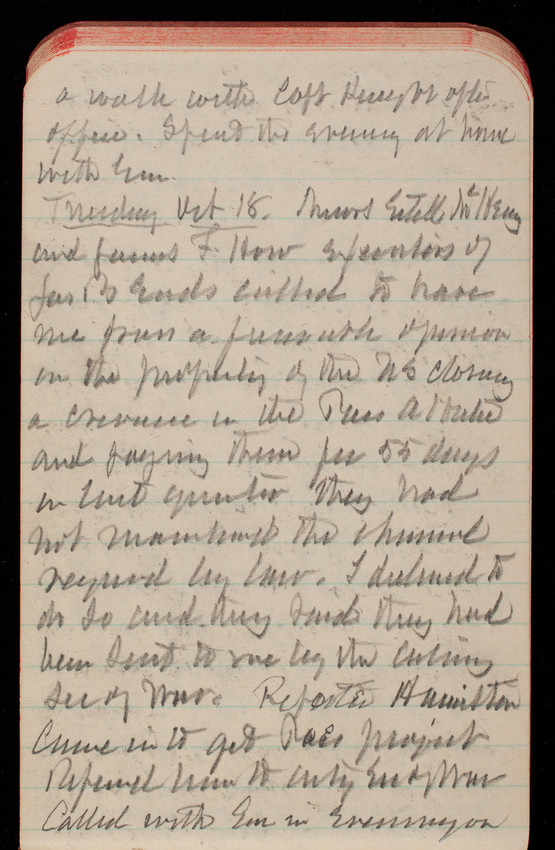 a walk with Capt Knight after
office. Spend the evening at home
with Em
Tuesday Oct 18. Messrs Estell McHenry
and James F. How executors of
Jas B Eads called to have
me pass a favorable opinion
on the propriety of the US closing
a crevasse in the Pass A Loutre
and paying them for 55 days
in last quarter they had
not maintained the channel
required by law. I declined to
do so and they said they had
been sent to me by the acting
Sec of War. Reporter Hamilton
Came in to get Pass project
Referred him to actg Sec of War
Called with Em in Evening on